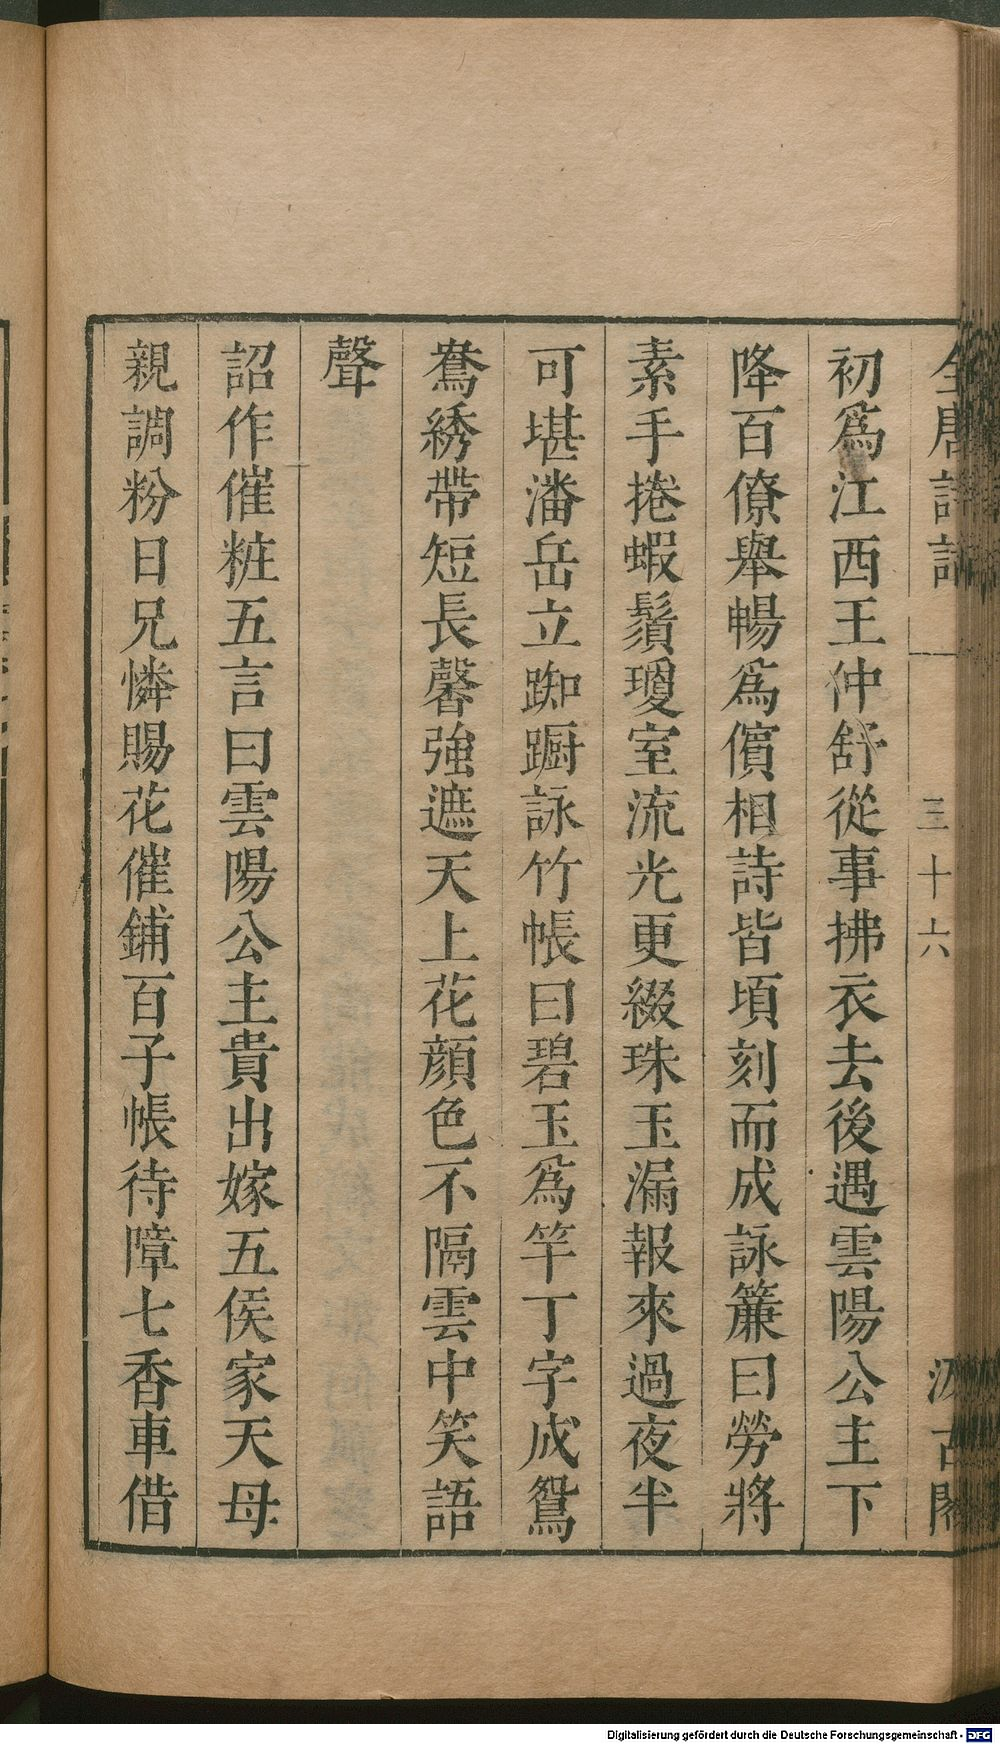 全唐詩話 三十六 汲古閣
初爲江西王仲舒從事拂衣去後遇雲陽公主下
降百僚舉暢爲儐相詩皆頃刻而成詠簾曰勞將
素手捲蝦鬚瓊室流光更綴珠玉漏報來過夜半
可堪潘岳立踟躕詠竹帳曰碧玉爲竿丁字成鴛
鴦綉帶短長馨強遮天上花顔色不隔雲中笑語
聲
詔作催粧五言曰雲陽公主貴出嫁五侯家天母
親調粉日兄憐賜花催鋪百子帳待障七香車借
Digitalisierung gefördert durch die Deutsche Forschungsgemeinschaft - DFG